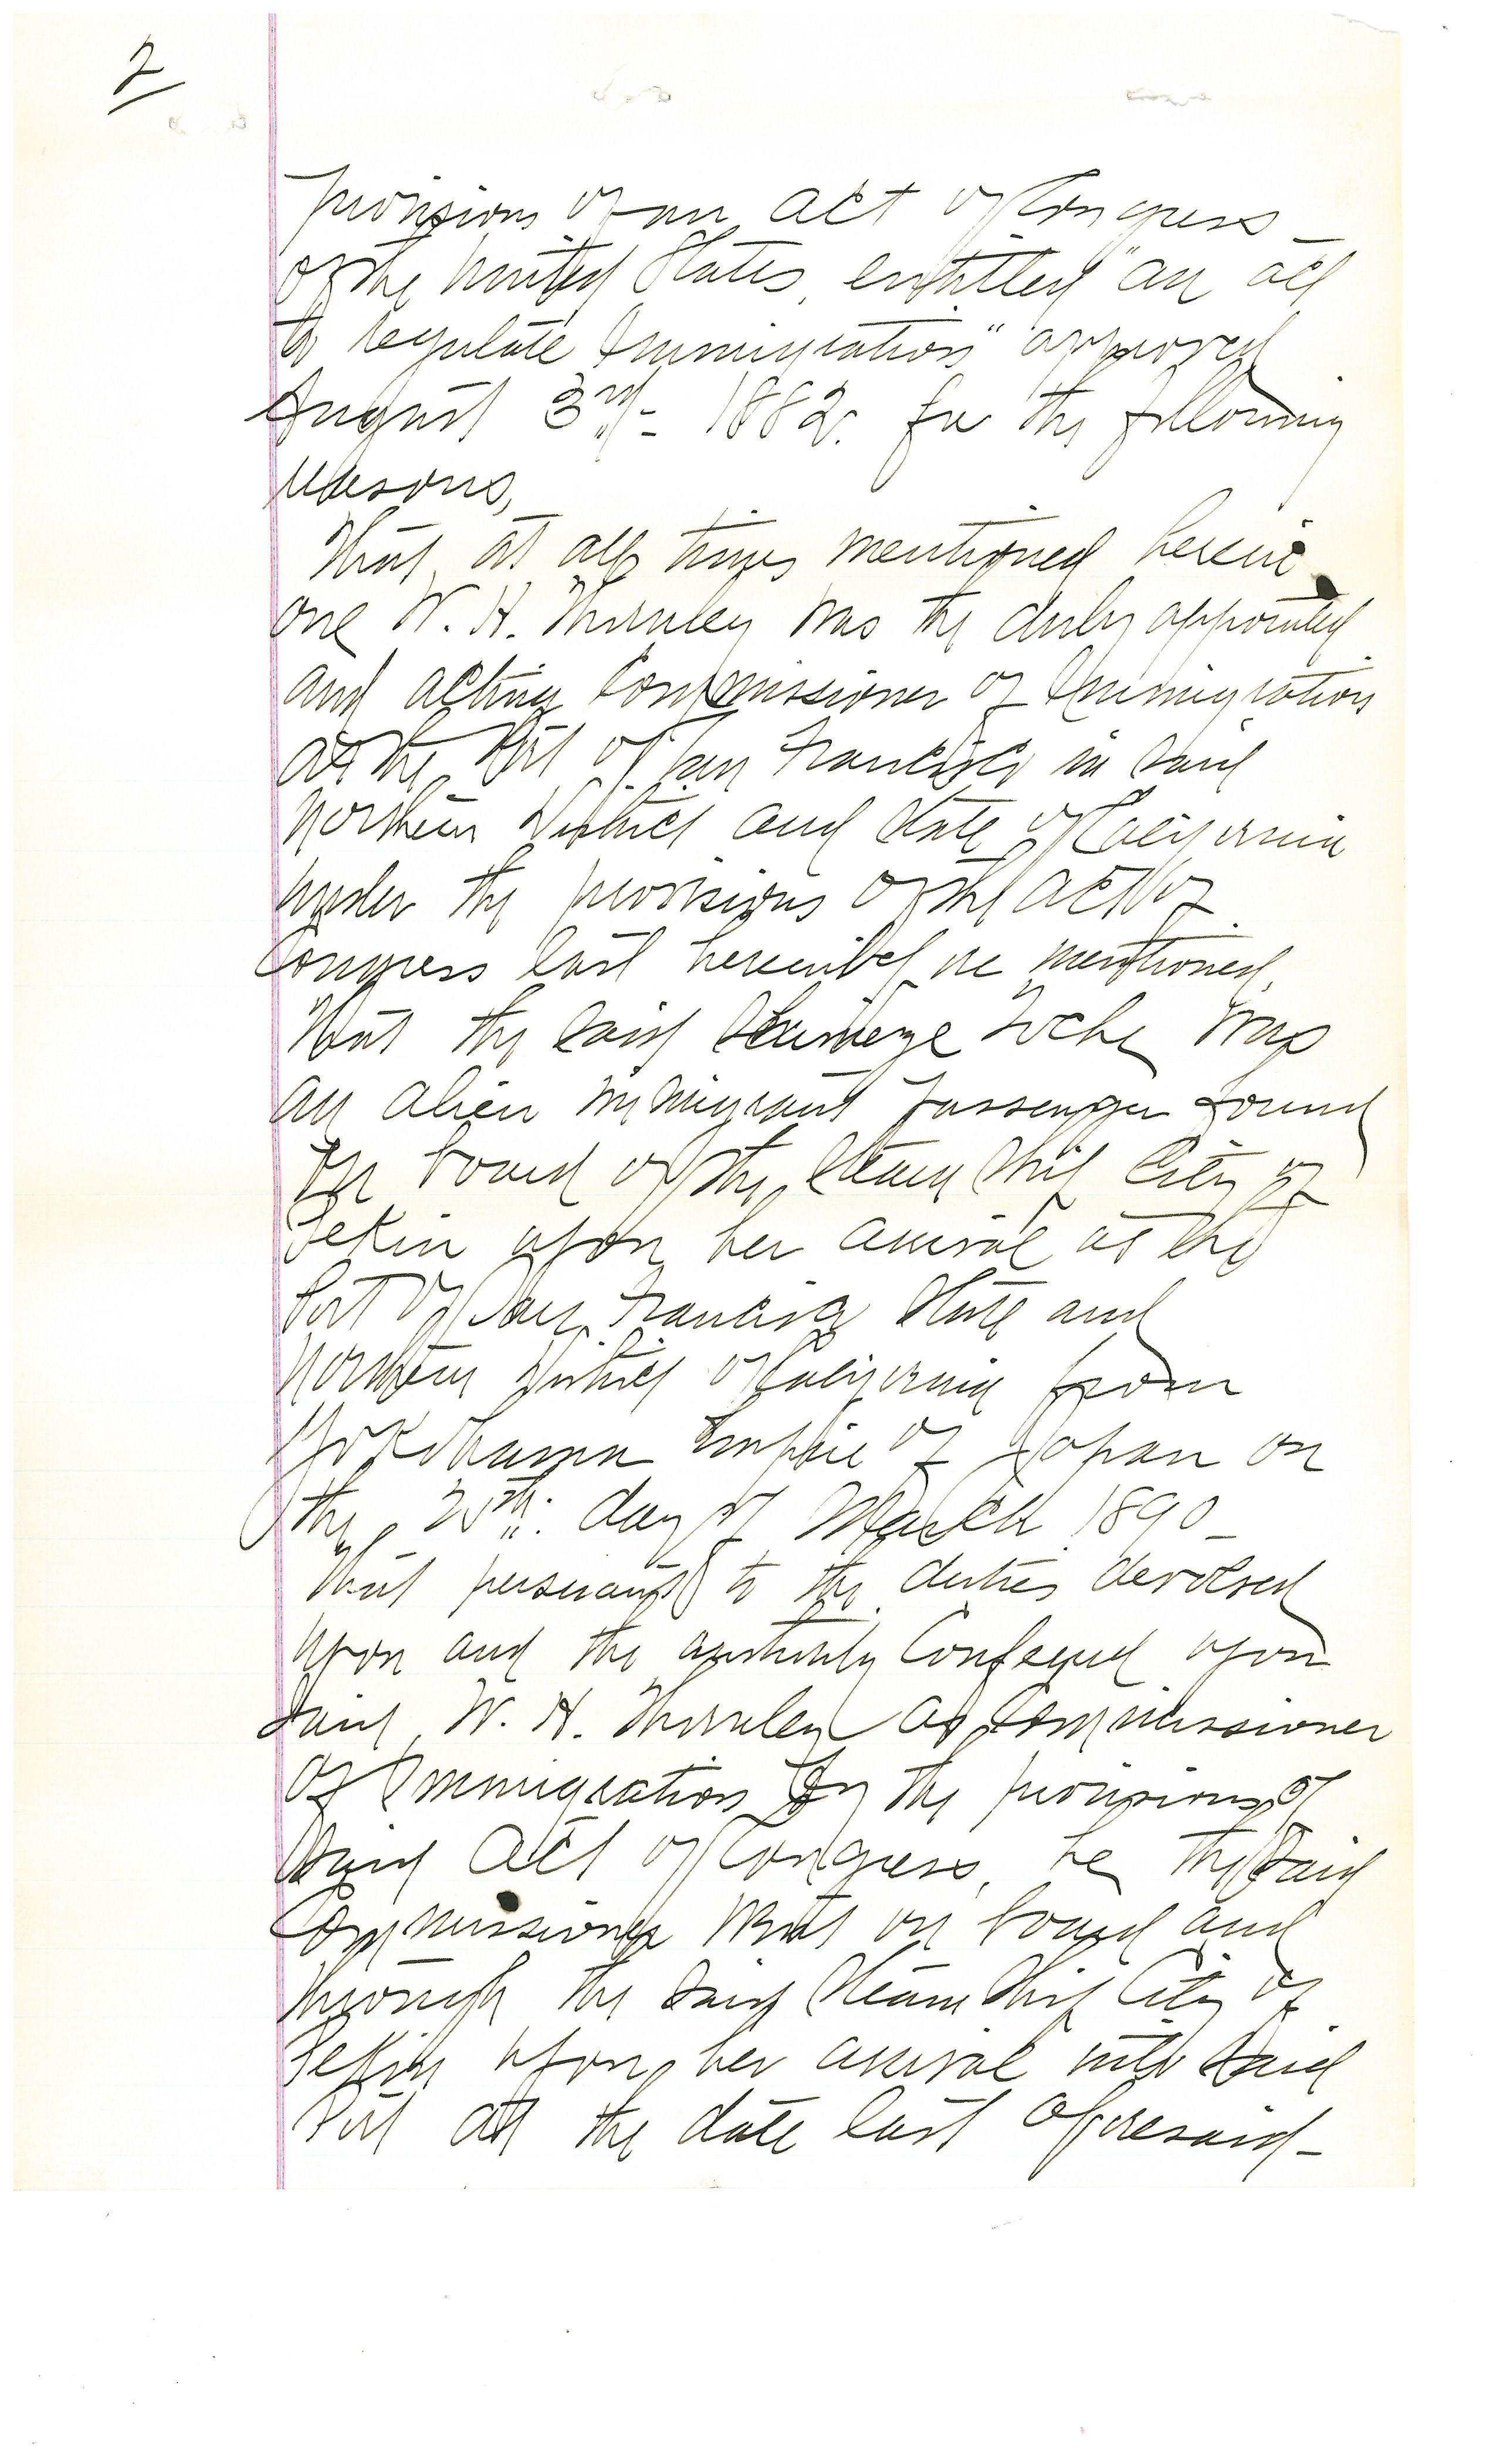 2
provisions of an act of Congress
of the United States, entitled "an act
to regulate Immigration" approved
August 3rd - 1882. for the following
reasons,
That at all times mentioned herein
one W. H. Thornley was the duly appointed
and acting Commissioner of Immigration
at the Port of San Francisco in said
Northern District and State of California
under the provisions of the act of
Congress last hereinbefore mentioned,
That the said was
an alien immigrant passenger found
on board of the Steam Ship City of
Pekin upon her arrival at the
Port of San Francisco State and
Northern District of California from
Yokohama Empire of Japan on
the 25th: day of March 1890 -
That pursuant to the duties devolved
upon and the authority Conferred upon
said W. H. Thornley as Commissioner
of Immigration by the provisions of
said Act of Congress, he the said
Commissioner went on board and
through the said Steam Ship City of
Pekin upon her arrival into said
Port at the date last aforesaid -